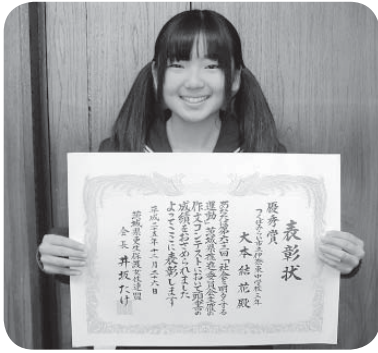 表彰状
優秀賞
つくばみらい市立伊奈東中学校三年
大本結花殿
あなたは第六三回「社会を明るくする
運動」茨城県推進委員会主催の
作文コンテストにおいて頭書の
成績をおさめられました
よってここに表彰します
平成二五年十二月二十六日
茨城県更生保護女性連盟
会長 井坂たけ